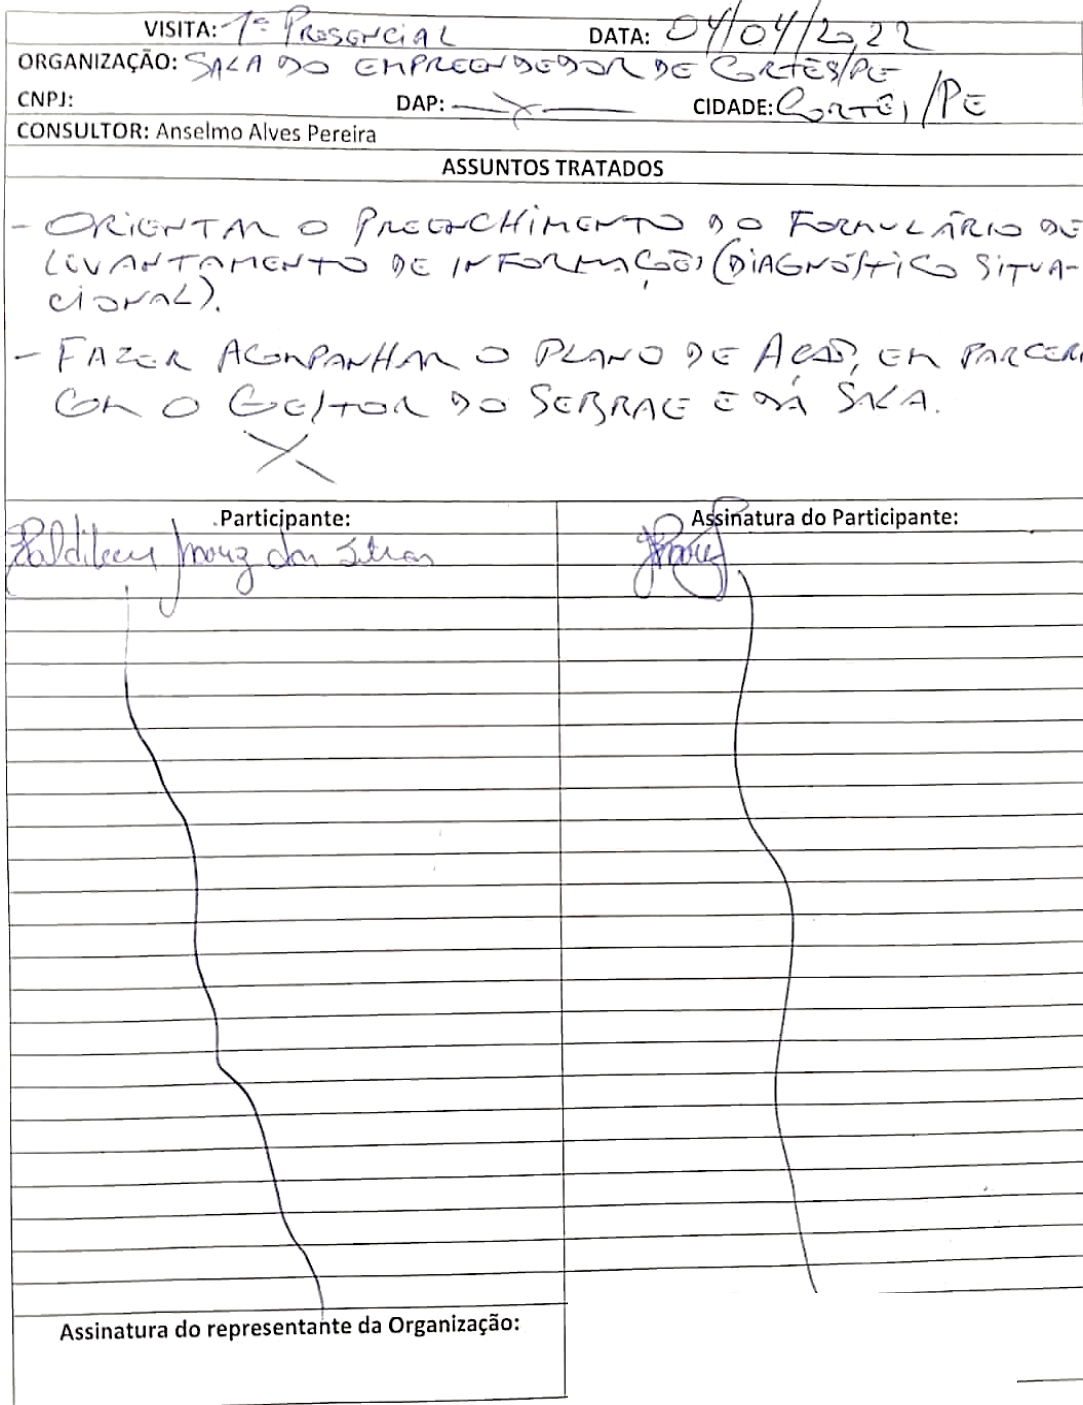 VISITA: 1ª PRESENCIAL DATA: 04/04/2022
ORGANIZAÇÃO: SALA DO EMPREENDEDOR DE CORTÊS/PE
CNPJ: DAP: CIDADE: CORTÊS/PE
CONSULTOR: Anselmo Alves Pereira
ASSUNTOS TRATADOS
- ORIENTAR O PREENCHIMENTO DO FORMULÁRIO DE
LEVANTAMENTO DE INFORMAÇÕES (DIAGNÓSTICO SITUA-
CIONAL).
- FAZER ACOMPANHAR O PLANO DE AÇÃO, EM PARCERI
COM O GESTOR DO SEBRAE E DA SALA.
Participante: Assinatura do Participante:
Assinatura do representante da Organização: